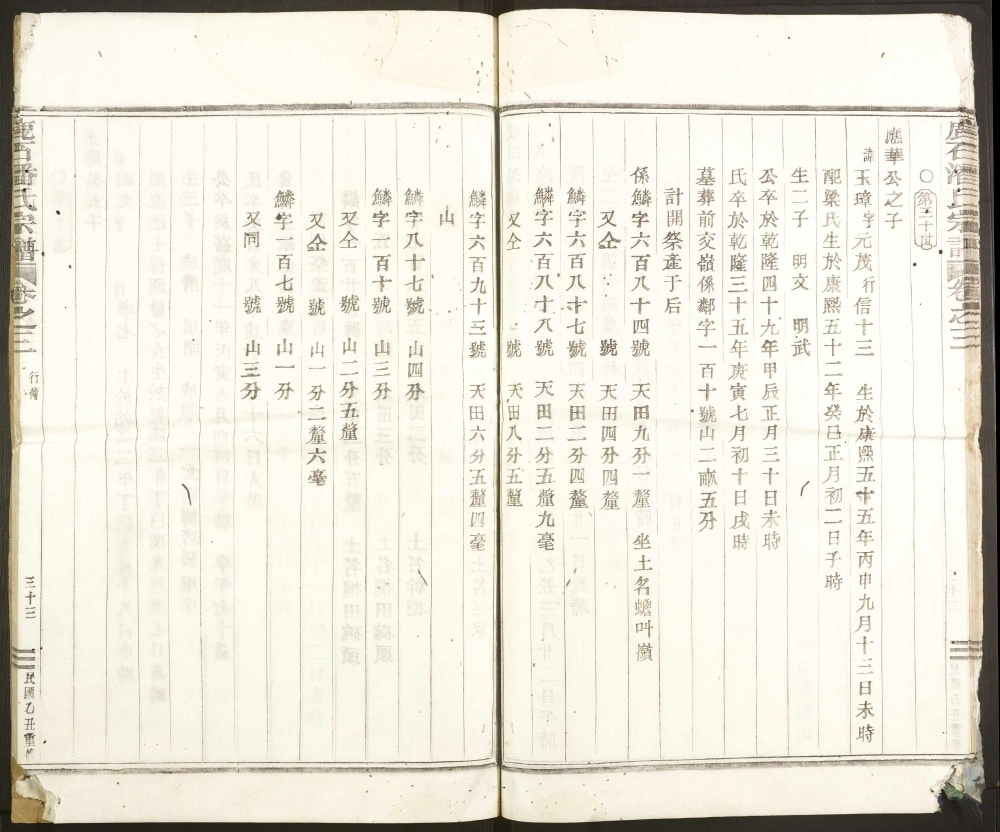 〇第三十四
應華公之子
諱玉璋字元茂行信十三 生於康熙五十五年丙申九月十三日未時
配梁氏生於康熙五十二年癸巳正月初二日子時
生二子 明文 明武
公卒於乾隆四十九年甲辰正月三十日未時
氏卒於乾隆三十五年庚寅七月初十日戌時
墓葬前交嶺係鄰字一百十號山二畝五分
計開祭產于后
係鱗字六百八十四號 天田九分一釐 坐土名蟾叫嶺
又仝 號 天田四分四釐
鱗字六百八十七號 天田二分四釐
鱗字六百八十八號 天田二分五釐九毫
又仝 號 天田八分五釐
鱗字六百九十三號 天田六分五釐四毫
山
鱗字八十七號 山四分
鱗字一百十號 山三分
又仝 號 山二分五釐
又仝 號 山一分二釐六毫
鱗字一百七號 山一分
又同 八號 山三分
鹿石潘氏宗譜 卷之三 行備 三十三 民國乙丑重修